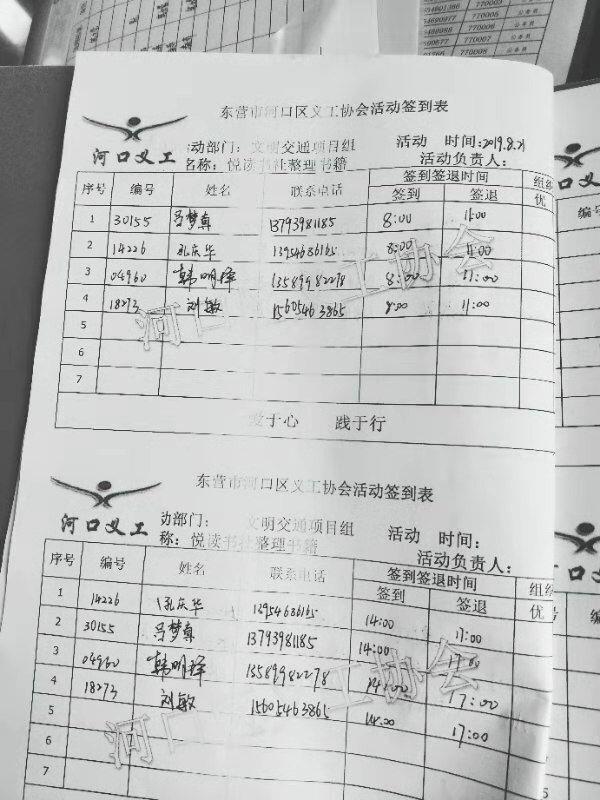 770003 公务员
770006 公务员
770007 公务员
770008 公务员
东营市河口区义工协会活动签到表
河口义工
动部门: 文明交通项目组 活动 时间:2019.8.21
名称: 悦读书社整理书籍 活动负责人:
序号 编号 姓名 联系电话 签到签退时间 组织
签到 签退 优
1 30155 吕梦真 13793981185 8:00 11:00
2 14226 孔庆华 13954686165 8:00 11:00
3 04960 韩明泽 13589982278 8:00 11:00
4 18273 刘敏 15605463865 8:00 11:00
5
6
7
爱于心 践于行
东营市河口区义工协会活动签到表
河口义工
动部门: 文明交通项目组 活动 时间:
称: 悦读书社整理书籍 活动负责人:
序号 编号 姓名 联系电话 签到签退时间 组织
签到 签退 优
1 14226 孔庆华 13954686165 14:00 17:00
2 30155 吕梦真 13793981185 14:00 17:00
3 04960 韩明泽 13589982278 14:00 17:00
4 18273 刘敏 15605463865 14:00 17:00
5
6
7